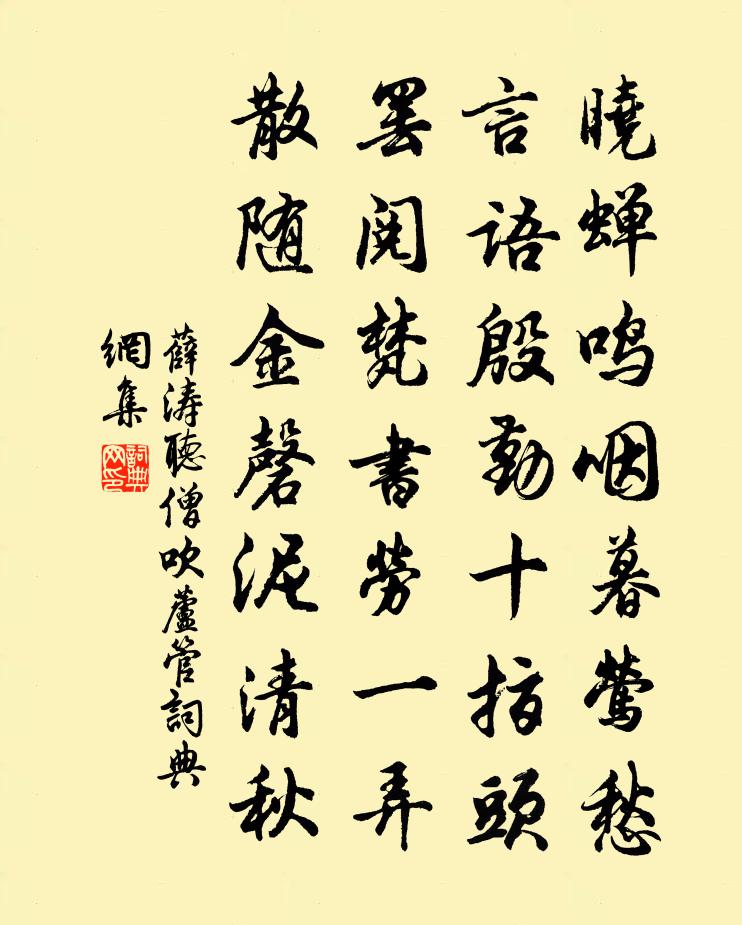 曉蟬鸣咽暮莺愁
言語殷勤十指頭
罢阅梵書劳一弄
散随金磬泥清秋
薛涛聽僧吹蘆管詞典
網集
詞典
网印